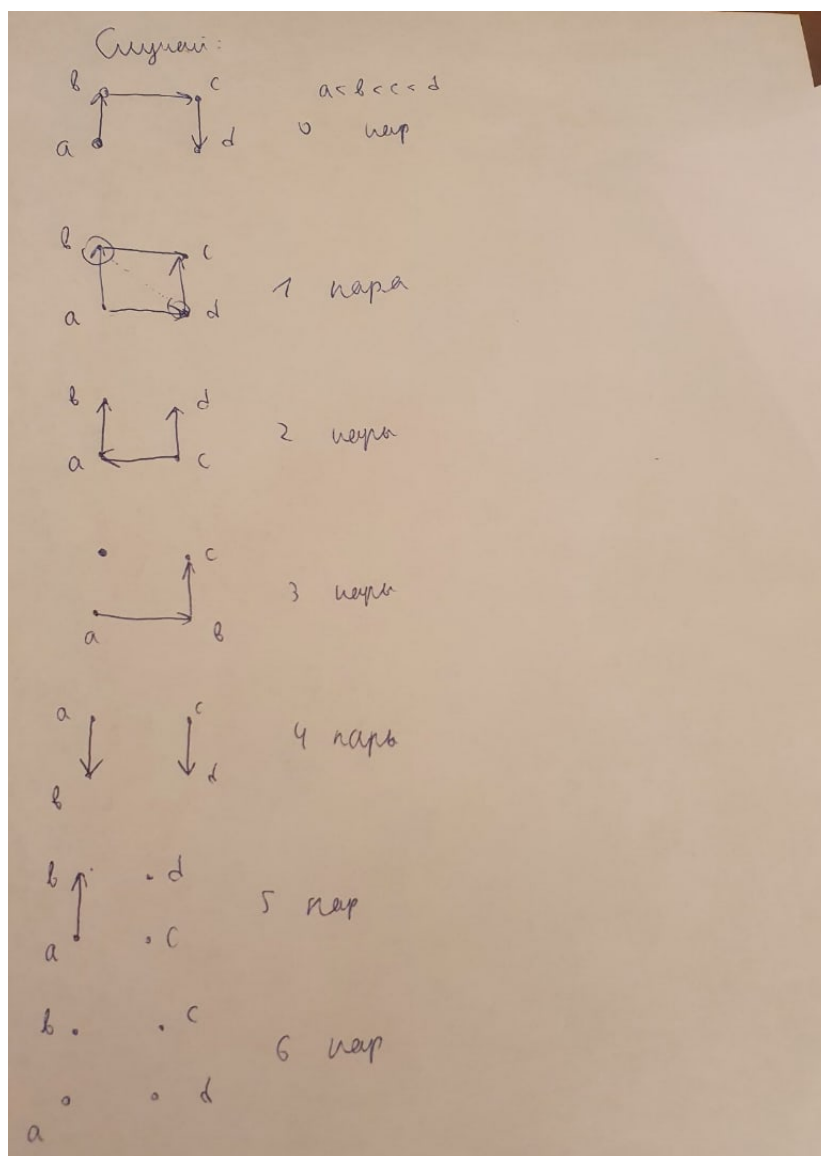 Случаи:
в c a<в<c<d
a d 0 пар
в c
a d 1 пара
в d
a c 2 пары
c
a в 3 пары
a c
в d 4 пары
в d
a c 5 пар
в c
a d 6 пар